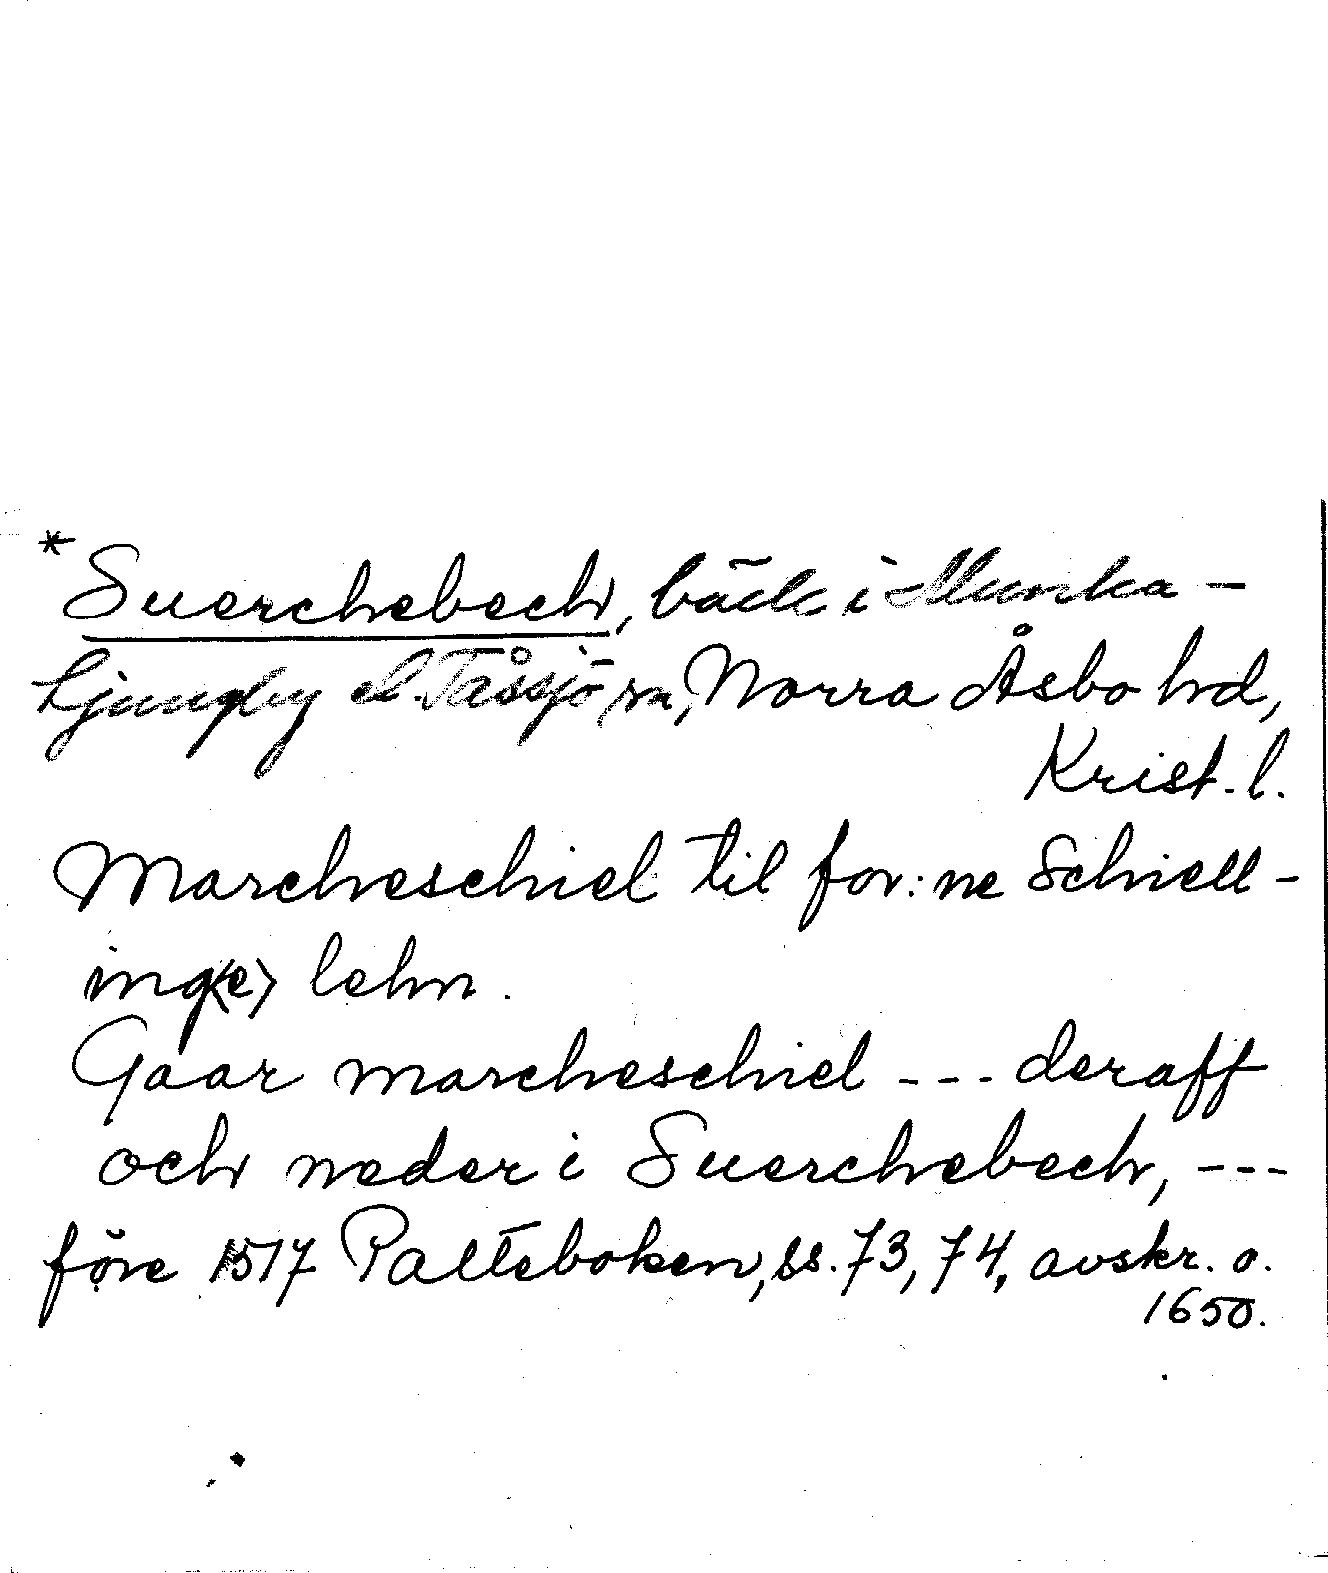 * Suerchebech, bäck i Munka-
Ljungby el. Tåssjö sn, Norra Åsbo hd,
Krist. l.
Marcheschiel til for:ne Schiell-
ing<e> lehn.
Gaar marcheschiel --- deraff
och neder i Suerchebech, ---
före 1517 Palteboken, ss. 73, 74, avskr. o.
1650.